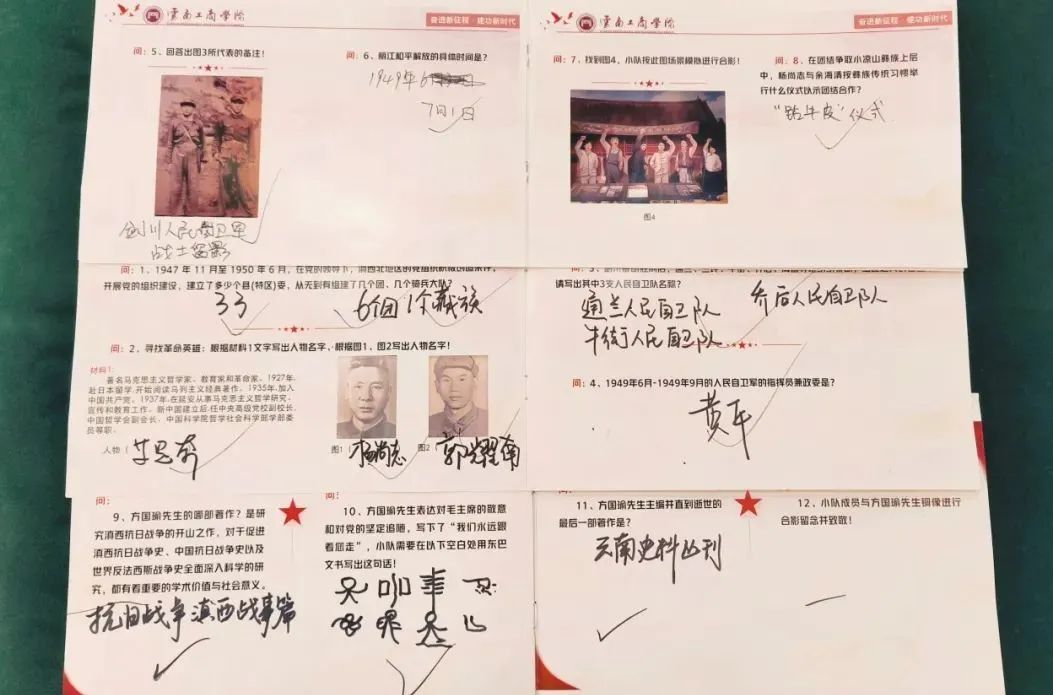 云南工商学院
奋进新征程·建功新时代
问：5、回答出图3所代表的备注！
剑川人民自卫军
战士留影
问：6、丽江和平解放的具体时间是？
1949年6
7月1日
云南工商学院
奋进新征程·建功新时代
问：7、找到图4，小队按此图场景模拟进行合影！
图4
问：8、在团结争取小凉山彝族上层
中，杨尚志与余海清按彝族传统习惯举
行什么仪式以示团结合作？
"钻牛皮"仪式
问：1、1947年11月至1950年6月，在党的领导下，滇西北地区的党组织积极创造条件，
开展党的组织建设，建立了多少个县(特区)委，从无到有组建了几个团、几个骑兵大队？
33 6个团 1个藏族
问：2、寻找革命英雄：根据材料1文字写出人物名字，根据图1、图2写出人物名字！
材料1：
著名马克思主义哲学家、教育家和革命家。1927年，
赴日本留学，开始阅读马列主义经典著作。1935年，加入
中国共产党。1937年，在延安从事马克思主义哲学研究、
宣传和教育工作。新中国建立后，任中央高级党校副校长，
中国哲学会副会长，中国科学院哲学社会科学部学部委
员等职。
人物（艾思奇
图1（杨尚志
图2（郭耀南
请写出其中3支人民自卫队名称？
通兰人民自卫队 乔后人民自卫队
牛街人民自卫队
问：4、1949年6月-1949年9月的人民自卫军的指挥员兼政委是？
黄平
问：
9、方国瑜先生的哪部著作？是研
究滇西抗日战争的开山之作，对于促进
滇西抗日战争史、中国抗日战争史以及
世界反法西斯战争史全面深入科学的研
究，都有着重要的学术价值与社会意义。
抗日战争滇西战事篇
问：
10、方国瑜先生表达对毛主席的敬意
和对党的坚定追随，写下了"我们永远跟
着您走"，小队需要在以下空白处用东巴
文书写出这句话！
问：
11、方国瑜先生主编并直到逝世的
最后一部著作是？
云南史料丛刊
12、小队成员与方国瑜先生铜像进行
合影留念并致敬！